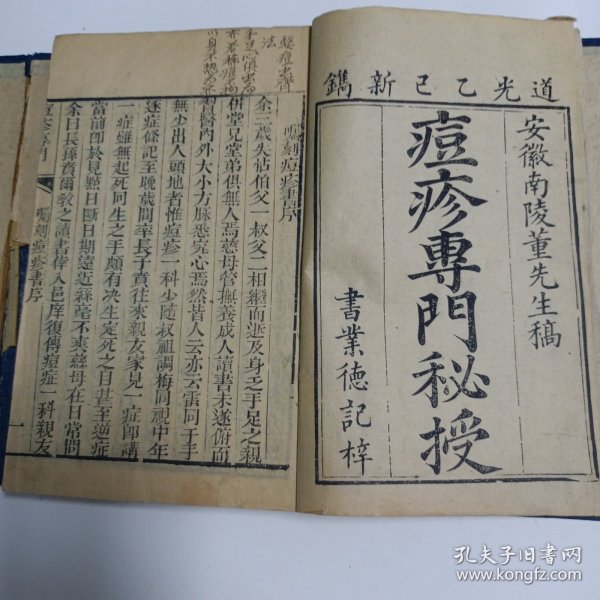 道光乙巳新鐫
安徽南陵董先生稿
痘疹專門秘授
書業德記梓
囑刻痘疹書序
余三歲失怙伯父一叔父二相繼而逝及身乏手足之親
併堂兄堂弟俱無人焉慈母管撫養成人讀書未遂俯而
醫內外大小方脉悉究心焉然皆人云亦云雷同千手
無少出人頭地者惟痘疹一科少隨叔祖調梅同視中年
逐症條記至晚歲間率長子賁往來親友家見一症即講
一症雖無起死回生之手頗有决生定死之目甚至逆症
當前即於見點日斷日期遠近絲毫不爽慈母在日常問
余曰長孫賁爾教之讀書倖入邑庠復傳痘症一科親友
痘疹專門
囑刻痘疹書序
一
孔夫子旧书网
www.kongfz.com